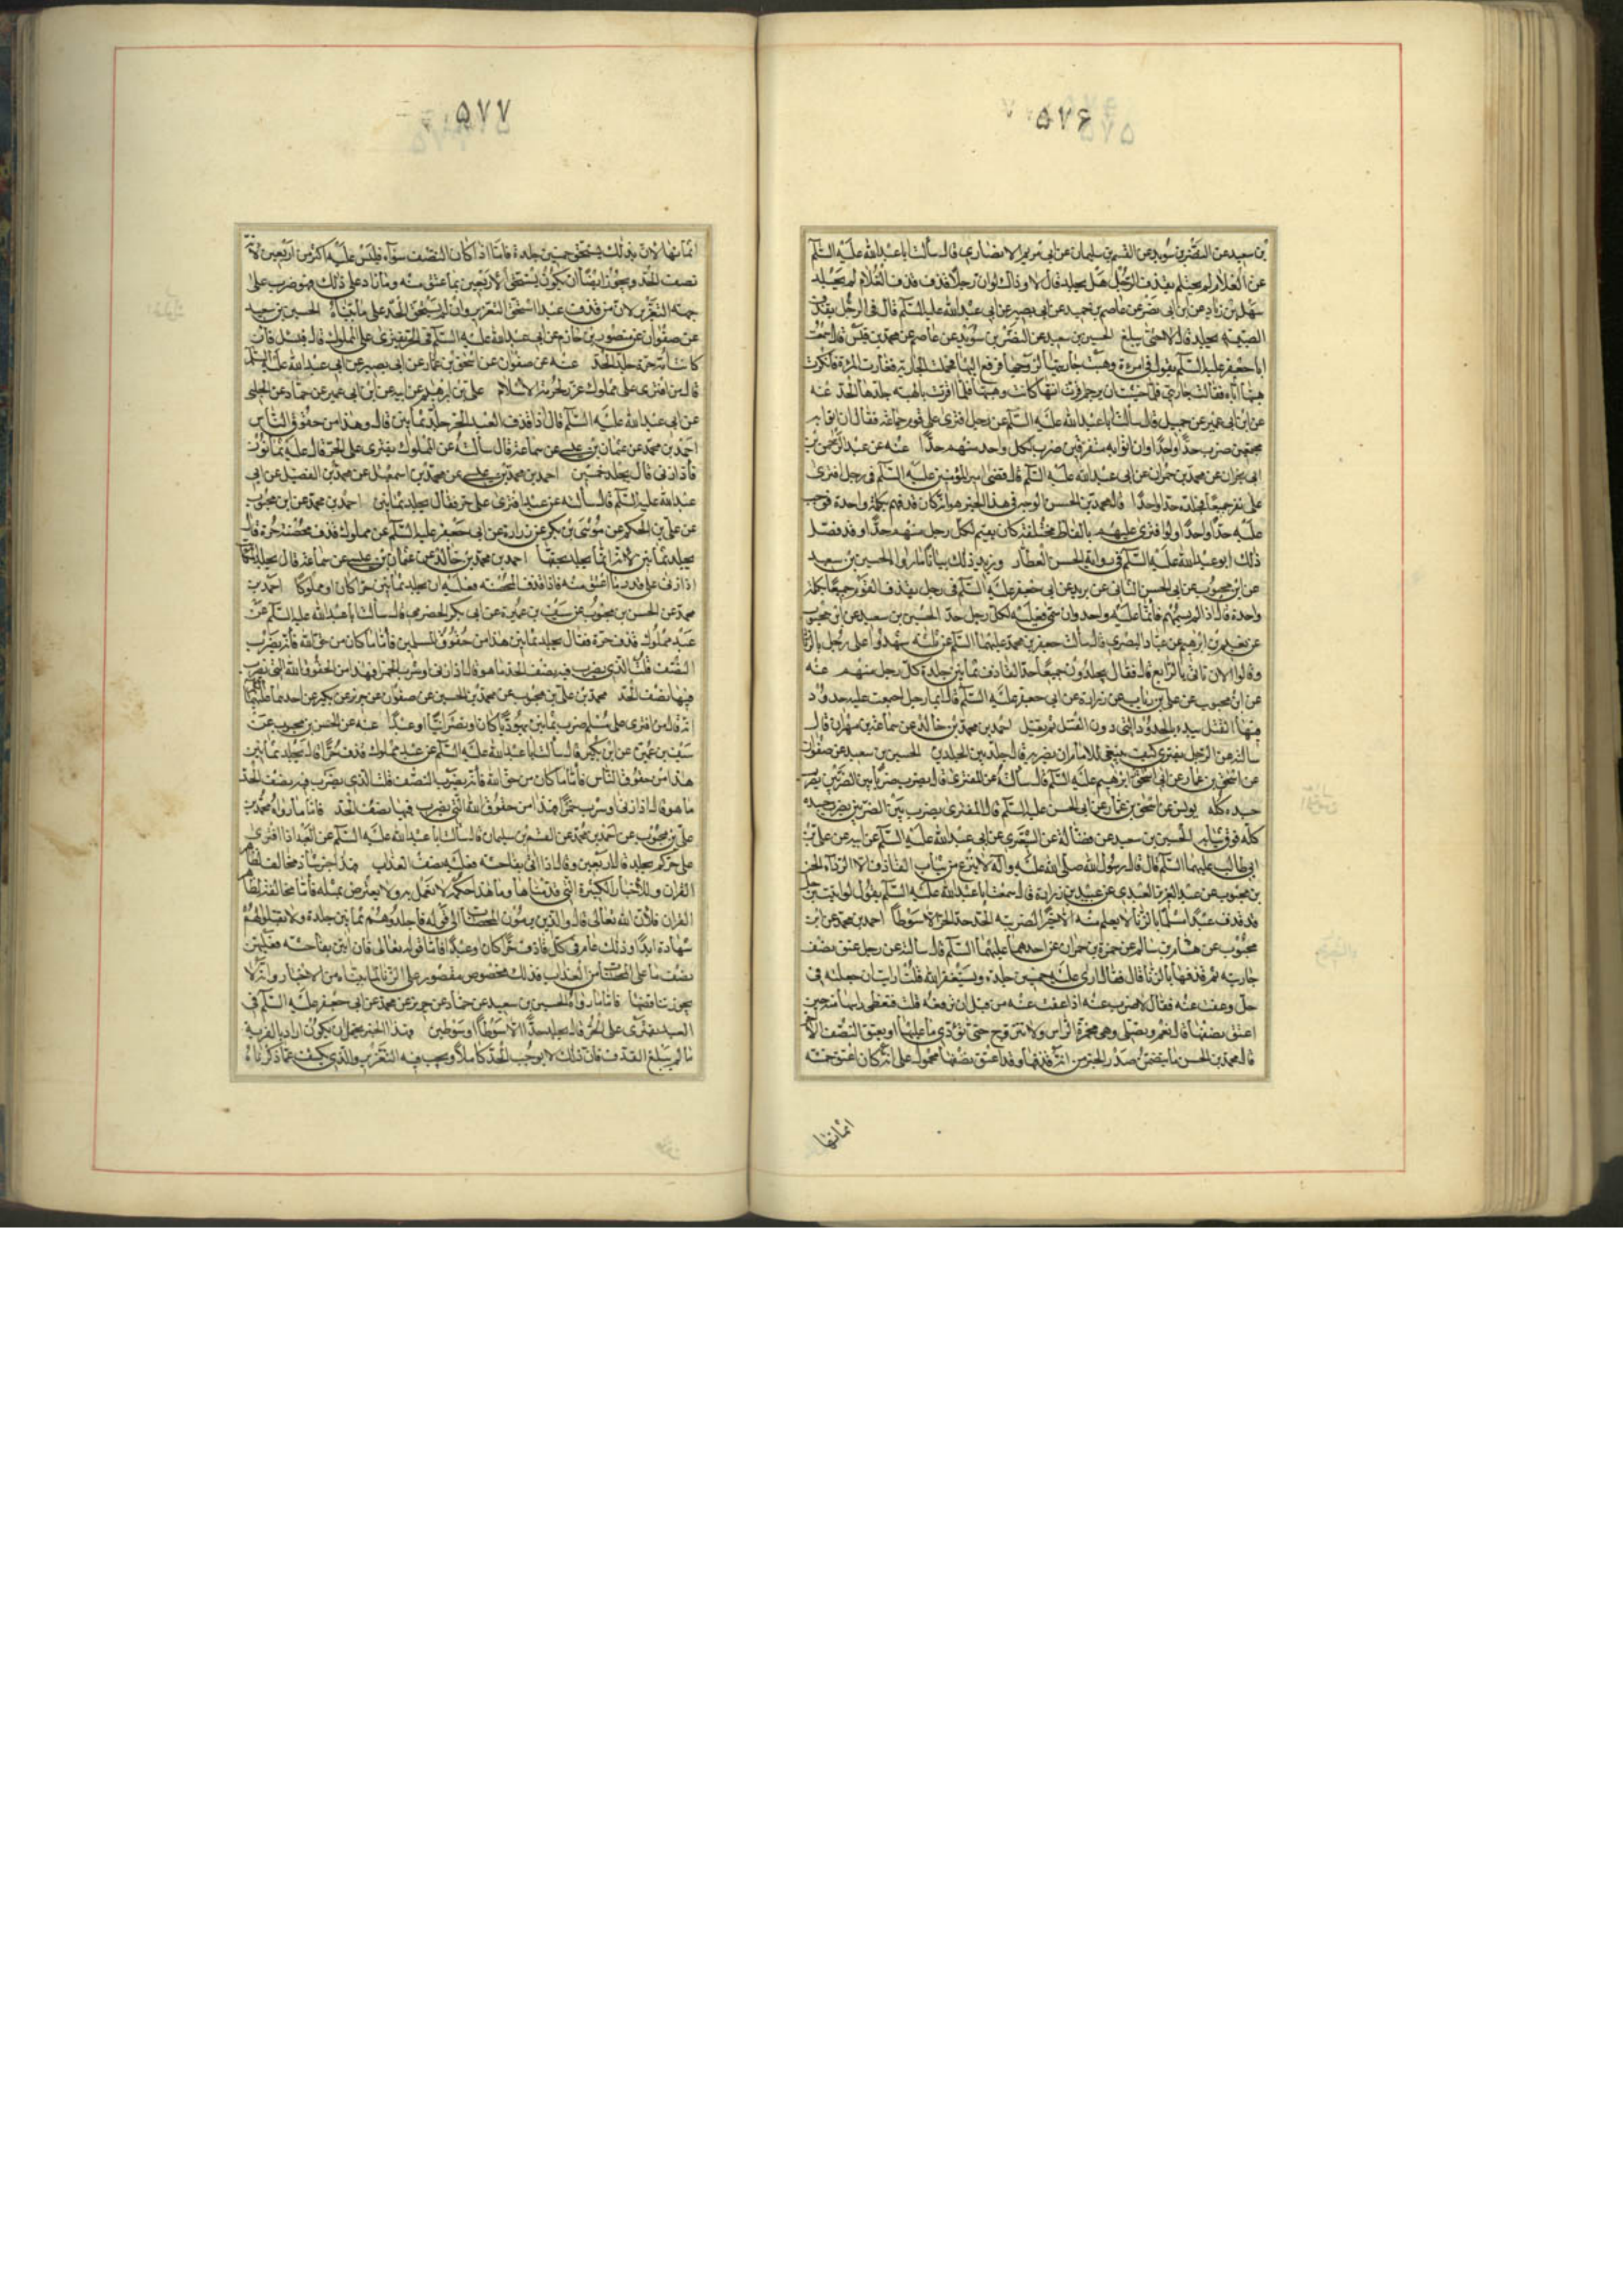 ۵۷۶
بن سعيد عن النضر بن سويد عن القسم بن سليمان عن ابى مريم الانصارى قال سألت ابا عبد الله عليه السلم
عن الغلام لم يحتلم يقذف الرجل هل يجلد قال لا وذاك لو ان رجلا قذف الغلام لم يجلد
سهل بن زياد عن ابن ابى نصر عن عاصم بن حميد عن ابى بصير عن ابى عبد الله عليه السلم قال فى الرجل يقذف
الصبية يجلد قال لا حتى يبلغ الحسين بن سعيد عن النضر بن سويد عن عاصم عن محمد بن قيس قال سمعت
ابا جعفر عليه السلم يقول فى امرءة وهبت جاريتها لزوجها فوقع اليها فحملت الجارية فغارت المرءة فانكرت
هبتها اياه فقالت جاريتى فلما خشيت ان يرجم اقرت انها كانت وهبتها فلما اقرت بالهبة جلدها الحد عنه
عن ابن ابى عمير عن جميل قال سألت ابا عبد الله عليه السلم عن رجل افترى على قوم جماعة فقال ان اتوا به
مجتمعين ضرب حدا واحدا وان اتوا به متفرقين ضرب لكل واحد منهم حدا عنه عن عبد الرحمن بن
ابى نجران عن محمد بن حمران عن ابى عبد الله عليه السلم قال قضى امير المؤمنين عليه السلم فى رجل افترى
على نفر جميعا فجلده حدا واحدا قال محمد بن الحسن الوجه فى هذا الخبر هو انه كان قذفهم بكلمة واحدة فوجب
عليه حدا واحدا ولو افترى عليهم بالفاظ مختلفة كان يقيم لكل رجل منهم حدا وقد فصل
ذلك ابو عبد الله عليه السلم فى رواية الحسن العطار ويزيد ذلك بيانا ما رواه الحسين بن سعيد
عن ابن محبوب عن ابى الحسن الشامى عن بريد عن ابى جعفر عليه السلم فى رجل يقذف القوم جميعا بكلمة
واحدة قال اذا لم يسمهم فانما عليه حد واحد وان سمى فعليه لكل رجل حد الحسين بن سعيد عن ابن محبوب
عن نعيم بن ابرهيم عن عباد البصرى قال سألت جعفر بن محمد عليهما السلم عن ثلثة شهدوا على رجل بالزنا
وقالوا الان نأتى بالرابع قال فقال يجلدون جميعا حد القاذف ثمانين جلدة كل رجل منهم عنه
عن ابن محبوب عن على بن رئاب عن زرارة عن ابى جعفر عليه السلم قال ايما رجل اجمعت عليه حدود
فيها القتل يبدء بالحدود التى دون القتل ثم يقتل احمد بن محمد بن خالد عن سماعة بن مهران قال
سألته عن الرجل يفترى كيف ينبغى للامام ان يضربه قال جلد بين الجلدين الحسين بن سعيد عن صفوان
عن اسحق بن عمار عن ابى ابرهيم عليه السلم قال سألته عن المفترى قال يضرب ضربا بين الضربين يضرب
جسده كله يونس عن اسحق بن عمار عن ابى الحسن عليه السلم قال المفترى يضرب بين الضربين يضرب جسده
كله فوق ثيابه الحسين بن سعيد عن فضالة عن الشعيرى عن ابى عبد الله عليه السلم عن ابيه عن على بن
ابى طالب عليهما السلم قال قال رسول الله صلى الله عليه واله لا ينزع من ثياب القاذف الا الرداء الحسن
بن محبوب عن عبد العزيز العبدى عن عبيد بن زرارة قال سمعت ابا عبد الله عليه السلم يقول لو اتيت برجل
قد قذف عبدا مسلما بالزنا لا يعلم منه الا خيرا لضربته الحد حد الحر الا سوطا احمد بن محمد عن ابن
محبوب عن هشام بن سالم عن حمزة بن حمران عن احدهما عليهما السلم قال سألته عن رجل عتق نصف
جاريته ثم قذفها بالزنا قال فقال ارى عليه خمسين جلدة ويستغفر الله قلت ارايت ان جعلته فى
حل وعفت عنه فقال لا ضرب عنه اذا عفت عنه من قبل ان ترفعه قلت فتغطى راسها منه حين
اعتق نصفها قال نعم وتصلى وهى مخمرة الراس ولا تتزوج حتى تؤدى ما عليها او يعتق النصف الاخر
قال محمد بن الحسن ما يتضمن صدر الخبر من انه قذفها وقد اعتق نصفها محمول على انه كان اعتق خمسة
اثمانها
۵۷۷
اثمانها لان بذلك يستحق خمسين جلدة فاما اذا كان النصف سواء فليس عليه اكثر من اربعين لانه
نصف الحد ويجوز ايضا ان يكون يستحق الاربعين بما عتق منه وما زاد على ذلك فهو ضرب على
جهة التعزير لان من قذف عبدا استحق التعزير وان لم يستحق الحد على ما بيناه الحسين بن سعيد
عن صفوان عن منصور بن حازم عن ابى عبد الله عليه السلم فى الحر يفترى على المملوك قال يسئل فان
كانت امه حرة جلد الحد عنه عن صفوان عن اسحق بن عمار عن ابى بصير عن ابى عبد الله عليه السلم
قال من افترى على مملوك عزر لحرمة الاسلام على بن ابرهيم عن ابيه عن ابن ابى عمير عن حماد عن الحلبى
عن ابى عبد الله عليه السلم قال اذا قذف العبد الحر جلد ثمانين قال وهذا من حقوق الناس
احمد بن محمد عن عثمان بن عيسى عن سماعة قال سألته عن المملوك يفترى على الحر قال عليه ثمانون
فاذا زنى قال يجلد خمسين احمد بن محمد بن عيسى عن محمد بن اسمعيل عن محمد بن الفضيل عن ابى
عبد الله عليه السلم قال سألته عن عبد افترى على حر فقال يجلد ثمانين احمد بن محمد عن ابن محبوب
عن على بن الحكم عن موسى بن بكر عن زرارة عن ابى جعفر عليه السلم عن مملوك قذف محصنة حرة قال
يجلد ثمانين لانه انما يجلد بحقها احمد بن محمد بن خالد عن عثمان بن عيسى عن سماعة قال يجلد المكاتب
اذا زنى على قدر ما اعتق منه فاذا قذف المحصنة فعليه ان يجلد ثمانين حرا كان او مملوكا احمد بن
محمد عن الحسن بن محبوب عن سيف بن عميرة عن ابى بكر الحضرمى قال سألت ابا عبد الله عليه السلم عن
عبد مملوك قذف حرة فقال يجلد ثمانين هذا من حقوق المسلمين فأما ما كان من حق الله فأنه يضرب
النصف قلت الذى يضرب فيه نصف الحد ما هو قال اذا زنى او شرب الخمر فهذا من الحقوق الله التى يضرب
فيها نصف الحد محمد بن على بن محبوب عن محمد بن الحسين عن صفوان عن حريز عن بكير عن احدهما عليهما السلم
انه قال من افترى على مسلم ضرب ثمانين يهوديا كان او نصرانيا او عبدا عنه عن الحسن بن محبوب عن
سيف بن عميرة عن ابن بكير قال سألت ابا عبد الله عليه السلم عن عبد مملوك قذف حرا قال يجلد ثمانين
هذا من حقوق الناس فأما ما كان من حق الله فأنه يضرب النصف قلت الذى يضرب فيه نصف الحد
ما هو قال اذا زنى او شرب خمرا فهذا من حقوق الله التى يضرب فيها نصف الحد فاما ما رواه محمد بن
على بن محبوب عن احمد بن محمد عن القسم بن سليمان قال سألت ابا عبد الله عليه السلم عن العبد اذا افترى
على حر كم يجلد قال اربعين وقال اذا اتى بفاحشة فعليه نصف العذاب فهذا خبر شاذ مخالف لظاهر
القران وللاخبار الكثيرة التى قدمناها وما هذا حكمه لا تعمل به ولا يعترض بمثله فأما مخالفته لظاهر
القران فلأن الله تعالى قال والذين يرمون المحصنات الى قوله فاجلدوهم ثمانين جلدة ولا تقبلوا لهم
شهادة ابدا وذلك عام فى كل قاذف حرا كان او عبدا فاما قوله تعالى فان اتين بفاحشة فعليهن
نصف ما على المحصنات من العذاب فذلك مخصوص مقصور على الزنا لما بيناه من الاخبار وانه لا
يجوز تناقضها فاما ما رواه الحسين بن سعيد عن حماد عن حريز عن محمد عن ابى جعفر عليه السلم فى
العبد يفترى على الحر قال يجلد حدا الا سوطا او سوطين فهذا الخبر يحتمل ان يكون اراد بالفرية
ما لم يبلغ القذف فان ذلك لا يوجب الحد كاملا ويجب فيه التعزير والذى يكشف عما ذكرناه